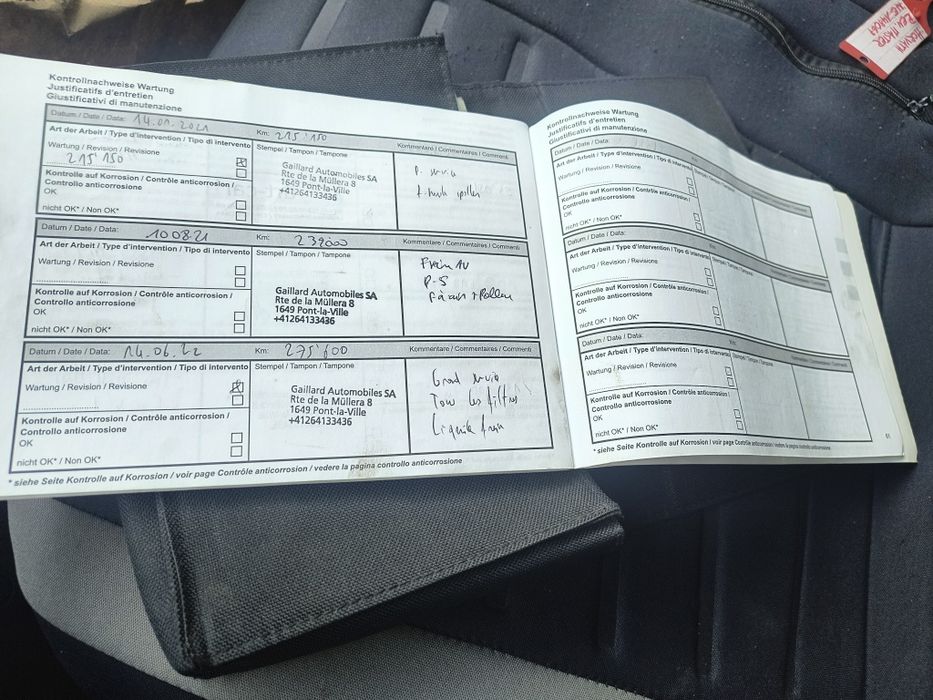 Kontrollnachweise Wartung
Justificatifs d'entretien
Giustificativi di manutenzione
Datum / Date / Data: 14.01.2021 Km: 215'150
Art der Arbeit / Type d'intervention / Tipo di intervento
Stempel / Tampon / Tampone
Kommentare / Commentaires / Commenti
Wartung / Revision / Revisione
215 150
Kontrolle auf Korrosion / Contrôle anticorrosion /
Controllo anticorrosione
OK
nicht OK* / Non OK*
Gaillard Automobiles SA
Rte de la Müllera 8
1649 Pont-la-Ville
+41264133436
Datum / Date / Data: 100821 Km: 239000
Kommentare / Commentaires / Commenti
Art der Arbeit / Type d'intervention / Tipo di intervento
Stempel / Tampon / Tampone
Wartung / Revision / Revisione
Kontrolle auf Korrosion / Contrôle anticorrosion /
Controllo anticorrosione
OK
nicht OK* / Non OK*
Gaillard Automobiles SA
Rte de la Müllera 8
1649 Pont-la-Ville
+41264133436
Frein AV
P-S
Datum / Date / Data: 14.06.22 Km: 275'600
Kommentare / Commentaires / Commenti
Art der Arbeit / Type d'intervention / Tipo di intervento
Stempel / Tampon / Tampone
Wartung / Revision / Revisione
Kontrolle auf Korrosion / Contrôle anticorrosion /
Controllo anticorrosione
OK
nicht OK* / Non OK*
Gaillard Automobiles SA
Rte de la Müllera 8
1649 Pont-la-Ville
+41264133436
Grand
Tous les filtres
Liquide frein
* siehe Seite Kontrolle auf Korrosion / voir page Contrôle anticorrosion / vedere la pagina controllo anticorrosione
Kontrollnachweise Wartung
Justificatifs d'entretien
Giustificativi di manutenzione
Datum / Date / Data:
Art der Arbeit / Type d'intervention / Tipo di intervento
Wartung / Revision / Revisione
Kontrolle auf Korrosion /
Contrôle anticorrosion /
Controllo anticorrosione
OK
nicht OK* / Non OK*
Datum / Date / Data: Km:
Art der Arbeit / Type d'intervention / Tipo di intervento
Stempel / Tampon / Tampone
Wartung / Revision / Revisione
Kontrolle auf Korrosion / Contrôle anticorrosion /
Controllo anticorrosione
OK
nicht OK* / Non OK*
Datum / Date / Data: Km:
Art der Arbeit / Type d'intervention / Tipo di intervento
Stempel / Tampon / Tampone
Wartung / Revision / Revisione
Kontrolle auf Korrosion / Contrôle anticorrosion /
Controllo anticorrosione
OK
nicht OK* / Non OK*
* siehe Seite Kontrolle auf Korrosion / voir page Contrôle anticorrosion / vedere la pagina controllo anticorrosione
61